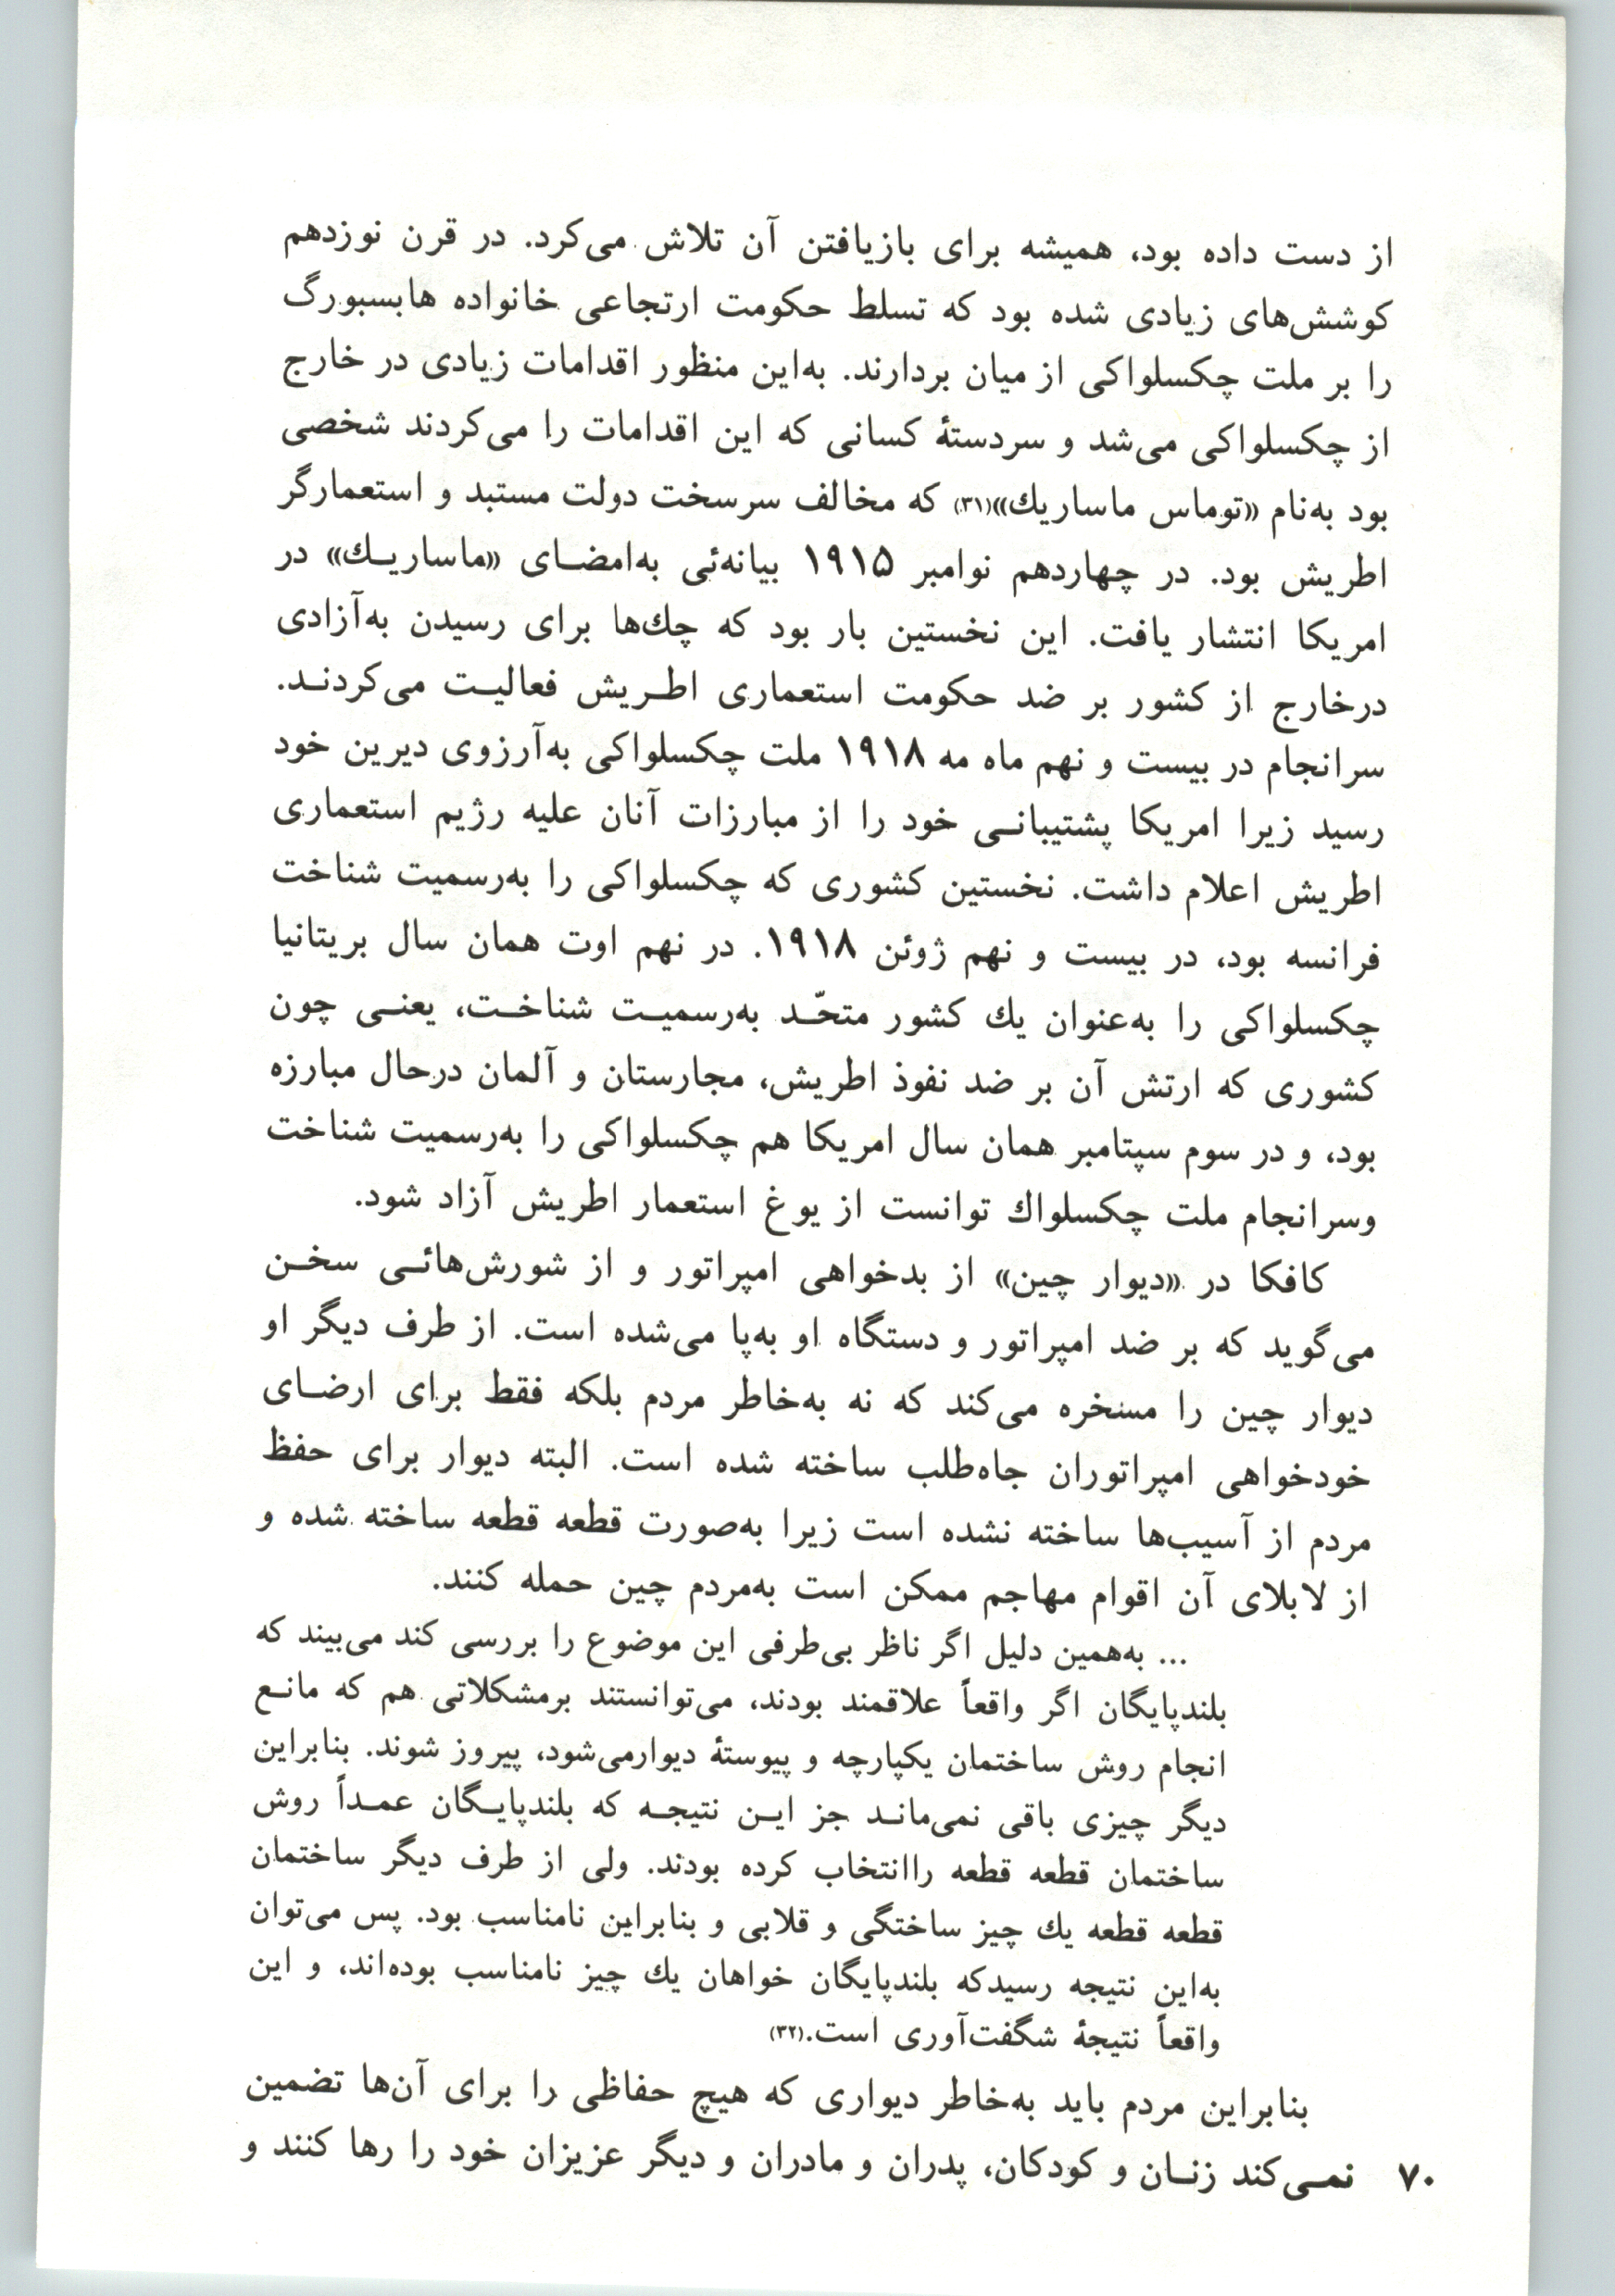 از دست داده بود، همیشه برای بازیافتن آن تلاش می‌کرد. در قرن نوزدهم
کوشش‌های زیادی شده بود که تسلط حکومت ارتجاعی خانواده هابسبورگ
را بر ملت چکسلواکی از میان بردارند. به‌این منظور اقدامات زیادی در خارج
از چکسلواکی می‌شد و سردستهٔ کسانی که این اقدامات را می‌کردند شخصی
بود به‌نام «توماس ماساریك»(۳۱) که مخالف سرسخت دولت مستبد و استعمارگر
اطریش بود. در چهاردهم نوامبر ۱۹۱۵ بیانه‌ئی به‌امضای «ماساریك» در
امریکا انتشار یافت. این نخستین بار بود که چك‌ها برای رسیدن به‌آزادی
درخارج از کشور بر ضد حکومت استعماری اطریش فعالیت می‌کردند.
سرانجام در بیست و نهم ماه مه ۱۹۱۸ ملت چکسلواکی به‌آرزوی دیرین خود
رسید زیرا امریکا پشتیبانی خود را از مبارزات آنان علیه رژیم استعماری
اطریش اعلام داشت. نخستین کشوری که چکسلواکی را به‌رسمیت شناخت
فرانسه بود، در بیست و نهم ژوئن ۱۹۱۸. در نهم اوت همان سال بریتانیا
چکسلواکی را به‌عنوان یك کشور متحّد به‌رسمیت شناخت، یعنی چون
کشوری که ارتش آن بر ضد نفوذ اطریش، مجارستان و آلمان درحال مبارزه
بود، و در سوم سپتامبر همان سال امریکا هم چکسلواکی را به‌رسمیت شناخت
وسرانجام ملت چکسلواك توانست از یوغ استعمار اطریش آزاد شود.
کافکا در «دیوار چین» از بدخواهی امپراتور و از شورش‌هائی سخن
می‌گوید که بر ضد امپراتور و دستگاه او به‌پا می‌شده است. از طرف دیگر او
دیوار چین را مسخره می‌کند که نه به‌خاطر مردم بلکه فقط برای ارضای
خودخواهی امپراتوران جاه‌طلب ساخته شده است. البته دیوار برای حفظ
مردم از آسیب‌ها ساخته نشده است زیرا به‌صورت قطعه قطعه ساخته شده و
از لابلای آن اقوام مهاجم ممکن است به‌مردم چین حمله کنند.
... به‌همین دلیل اگر ناظر بی‌طرفی این موضوع را بررسی کند می‌بیند که
بلندپایگان اگر واقعاً علاقمند بودند، می‌توانستند برمشکلاتی هم که مانع
انجام روش ساختمان یکپارچه و پیوستهٔ دیوارمی‌شود، پیروز شوند. بنابراین
دیگر چیزی باقی نمی‌ماند جز این نتیجه که بلندپایگان عمداً روش
ساختمان قطعه قطعه راانتخاب کرده بودند. ولی از طرف دیگر ساختمان
قطعه قطعه یك چیز ساختگی و قلابی و بنابراین نامناسب بود. پس می‌توان
به‌این نتیجه رسیدکه بلندپایگان خواهان یك چیز نامناسب بوده‌اند، و این
واقعاً نتیجهٔ شگفت‌آوری است.(۳۲)
بنابراین مردم باید به‌خاطر دیواری که هیچ حفاظی را برای آن‌ها تضمین
نمی‌کند زنان و کودکان، پدران و مادران و دیگر عزیزان خود را رها کنند و
۷۰